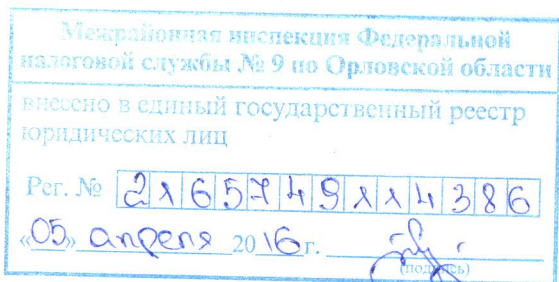 Межрайонная инспекция Федеральной
налоговой службы № 9 по Орловской области
внесено в единый государственный реестр
юридических лиц
Рег. № 2165749114386
«05» апреля 2016 г.
(подпись)